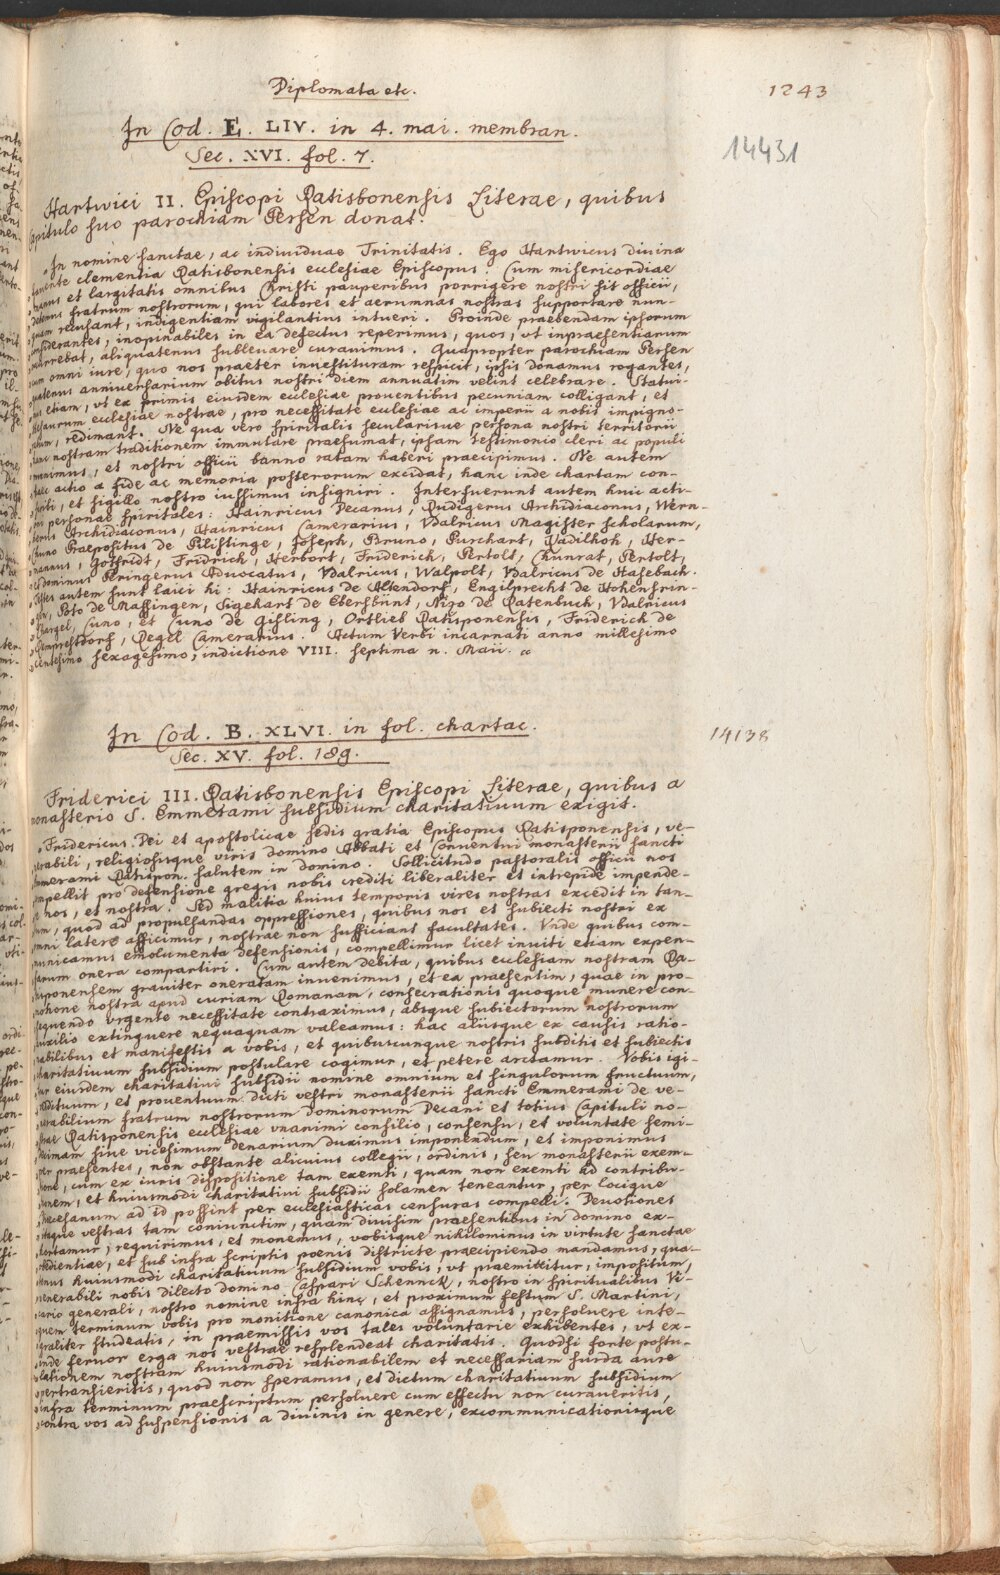 Diplomata etc.
1243
In Cod. E. LIV. in 4. mai. membran.
Sec. XVI. fol. 7.
14431
Hartwici II. Episcopi Ratisbonensis Literae, quibus
Capitulo suo parochiam Persen donat.
In nomine sanctae, ac individuae Trinitatis. Ego Hartwicus divina
clementia Ratisbonensis ecclesiae Episcopus. Cum misericordiae
manus et largitatis omnibus Christi pauperibus porrigere nostri sit officii,
fratrum nostrorum, qui labores et aerumnas nostras supportare nun-
quam recusant, indigentiam vigilantius intueri. Proinde praebendam ipsorum
considerantes, inopinabiles in ea defectus reperimus, quos, ut inpraesentiarum
occurrebat, aliquatenus subleuare curauimus. Quapropter parochiam Persen
cum omni iure, quo nos praeter inuestituram respicit, ipsis donamus rogantes,
quatenus anniuersarium obitus nostri diem annuatim velint celebrare. Statui-
mus etiam, ut ex primis eiusdem ecclesiae prouentibus pecuniam colligant, et
thesaurum ecclesiae nostrae, pro necessitate ecclesiae ac imperii a nobis impigno-
ratum, redimant. Ne qua vero spiritalis secularisue persona nostri territorii
hanc nostram traditionem immutare praesumat, ipsam testimonio cleri ac populi
et nostri officii banno ratam haberi praecipimus. Ne autem
haec actio a fide ac memoria posterorum excidat, hanc inde chartam con-
scribi, et sigillo nostro iussimus insigniri. Interfuerunt autem huic acti-
oni personae spiritales: Hainricus Decanus, Rudigerus Archidiaconus, Wern-
herus Archidiaconus, Hainricus Camerarius, Vdalricus Magister scholarum,
Chuno Praepositus de Pilistinge, Joseph, Bruno, Purchart, Vadilhoh, Her-
mannus, Gotfridt, Fridrich, Herbort, Friderich, Pertolt, Chunrat, Pertolt,
et dominus Peringerus Aduocatus, Vdalricus, Walpolt, Vdalricus de Hasebach.
Testes autem sunt laici hi: Hainricus de Altendorf, Engilprecht de Hohensrin-
gen, Poto de Massingen, Sigehart de Ebersbünt, Nizo de Ratenbuch, Vdalricus
Chargel, Cuno, et Cuno de Gisling, Ortlieb Ratisponensis, Friderich de
Gemprechtdorf, Regel Camerarius. Actum Verbi incarnati anno millesimo
centesimo sexagesimo, indictione VIII. septima n. Maii.
In Cod. B. XLVI. in fol. chartac.
Sec. XV. fol. 189.
14138
Friderici III. Ratisbonensis Episcopi Literae, quibus a
monasterio S. Emmerami subsidium charitatiuum exigit.
Fridericus Dei et apostolicae sedis gratia Episcopus Ratisponensis, ve-
nerabili, religiosisque viris domino Abbati et Conventui monasterii sancti
Emmerami Ratispon. salutem in domino. Sollicitudo pastoralis officii nos
impellit pro defensione gregis nobis crediti liberaliter et intrepide impende-
re nos, et nostra. Sed malitia huius temporis vires nostras excedit in tan-
tum, quod ad propulsandas oppressiones, quibus nos et subiecti nostri ex
omni latere afficimur, nostrae non sufficiant facultates. Vnde quibus com-
municamus emolumenta defensionis, compellimur licet inuiti etiam expen-
sarum onera compartiri. Cum autem debita, quibus ecclesiam nostram Ra-
tisponensem grauiter oneratam inuenimus, et ea praesertim, quae in pro-
motione nostra apud curiam Romanam, consecrationis quoque munere con-
sequendo vrgente necessitate contraximus, absque subiectorum nostrorum
auxilio extinguere nequaquam valeamus: hac aliisque ex causis ratio-
nabilibus et manifestis a vobis, et quibuscunque nostris subditis et subiectis
charitatiuum subsidium postulare cogimur, et petere arctamur. Vobis igi-
tur eiusdem charitatiui subsidii nomine omnium et singulorum fructuum,
redituum, et prouentuum dicti vestri monasterii sancti Emmerami de ve-
nerabilium fratrum nostrorum dominorum Decani et totius Capituli no-
strae Ratisponensis ecclesiae vnanimi consilio, consensu, et voluntate semi-
decimam siue vicesimum denarium duximus imponendum, et imponimus
per praesentes, non obstante alicuius collegii, ordinis, seu monasterii exem-
tione, cum ex iuris dispositione tam exemti, quam non exemti ad contribu-
tionem, et huiusmodi charitatiui subsidii solamen teneantur, per locique
Dioecesanum ad id possint per ecclesiasticas censuras compelli. Deuotiones
itaque vestras tam coniunctim, quam diuisim praesentibus in domino ex-
hortamur, requirimus, et monemus, vobisque nihilominus in virtute sanctae
obedientiae, et sub infra scriptis poenis districte praecipiendo mandamus, qua-
tenus huiusmodi charitatiuum subsidium vobis, vt praemittitur, impositum,
venerabili nobis dilecto domino Caspari Schennck, nostro in spiritualibus Vi-
cario generali, nostro nomine infra hinc, et proximum festum S. Martini,
quem terminum vobis pro monitione canonica assignamus, persoluere inte-
graliter studeatis, in praemissis vos tales voluntarie exhibentes, vt ex-
inde feruor erga nos vestrae resplendeat charitatis. Quodsi forte postu-
lationem nostram huiusmodi rationabilem et necessariam surda aure
pertransieritis, quod non speramus, et dictum charitatiuum subsidium
infra terminum praescriptum persoluere cum effectu non curaueritis,
contra vos ad suspensionis a diuinis in genere, excommunicationisque